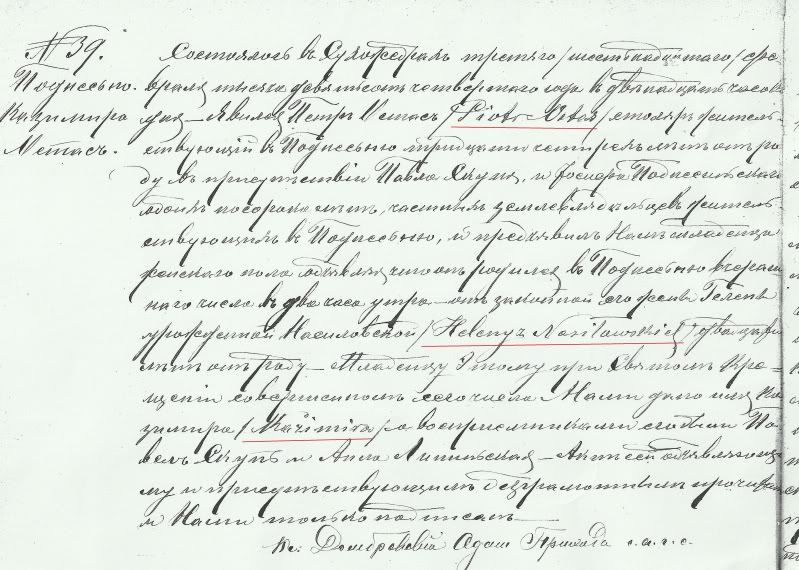 № 39.
Поднесьно.
Казимиръ
Метасъ.
Состоялось въ Сухожебрахъ третьяго /шестьнадцатаго/ фе-
враля тысяча девятьсотъ четвертаго года въ двѣнадцать часовъ
дня — явился Петръ Метасъ /Piotr Metas/ столяръ житель-
ствующій въ Поднесьню тридцати четырехъ лѣтъ отъ ро-
ду въ присутствіи Павла Скупа, и
обоихъ по сорока лѣтъ, частныхъ землевладѣльцевъ житель-
ствующихъ въ Поднесьню, и предъявилъ Намъ младенца
женскаго пола объявляя что онъ родился въ Поднесьню вчераш-
наго числа въ два часа утра — отъ законной его жены Гелены
урожденной Насиловской /Heleny z Nasiłowskich/ двадцати
лѣтъ отъ роду — Младенцу этому при Святомъ Кре-
щеніи совершенномъ сего числа Нами дано имя Ка-
зимира /Kazimira/ а воспріемниками его были Па-
велъ Скупъ и Анна — Актъ сей объявляюще-
му и присутствующимъ безграмотнымъ прочитанъ
и Нами только подписанъ —
Кс. Домбровскій Адам с. а. г. с.